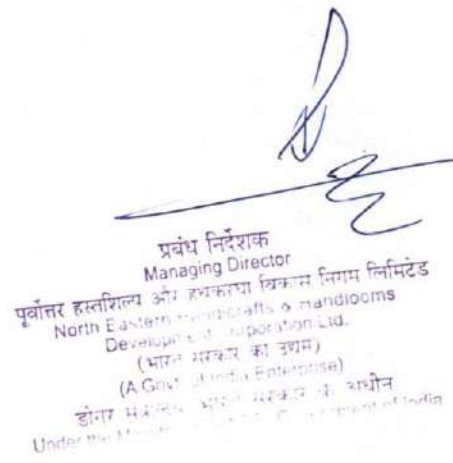 प्रबंध निर्देशक
Managing Director
पूर्वोत्तर हस्तशिल्प और हथकरघा विकास निगम लिमिटेड
North Eastern Handicrafts & Handlooms
Development Corporation Ltd.
(भारत सरकार का उद्यम)
(A Govt. of India Enterprise)
डोनर भारत सरकार के अधीन
Under the of India